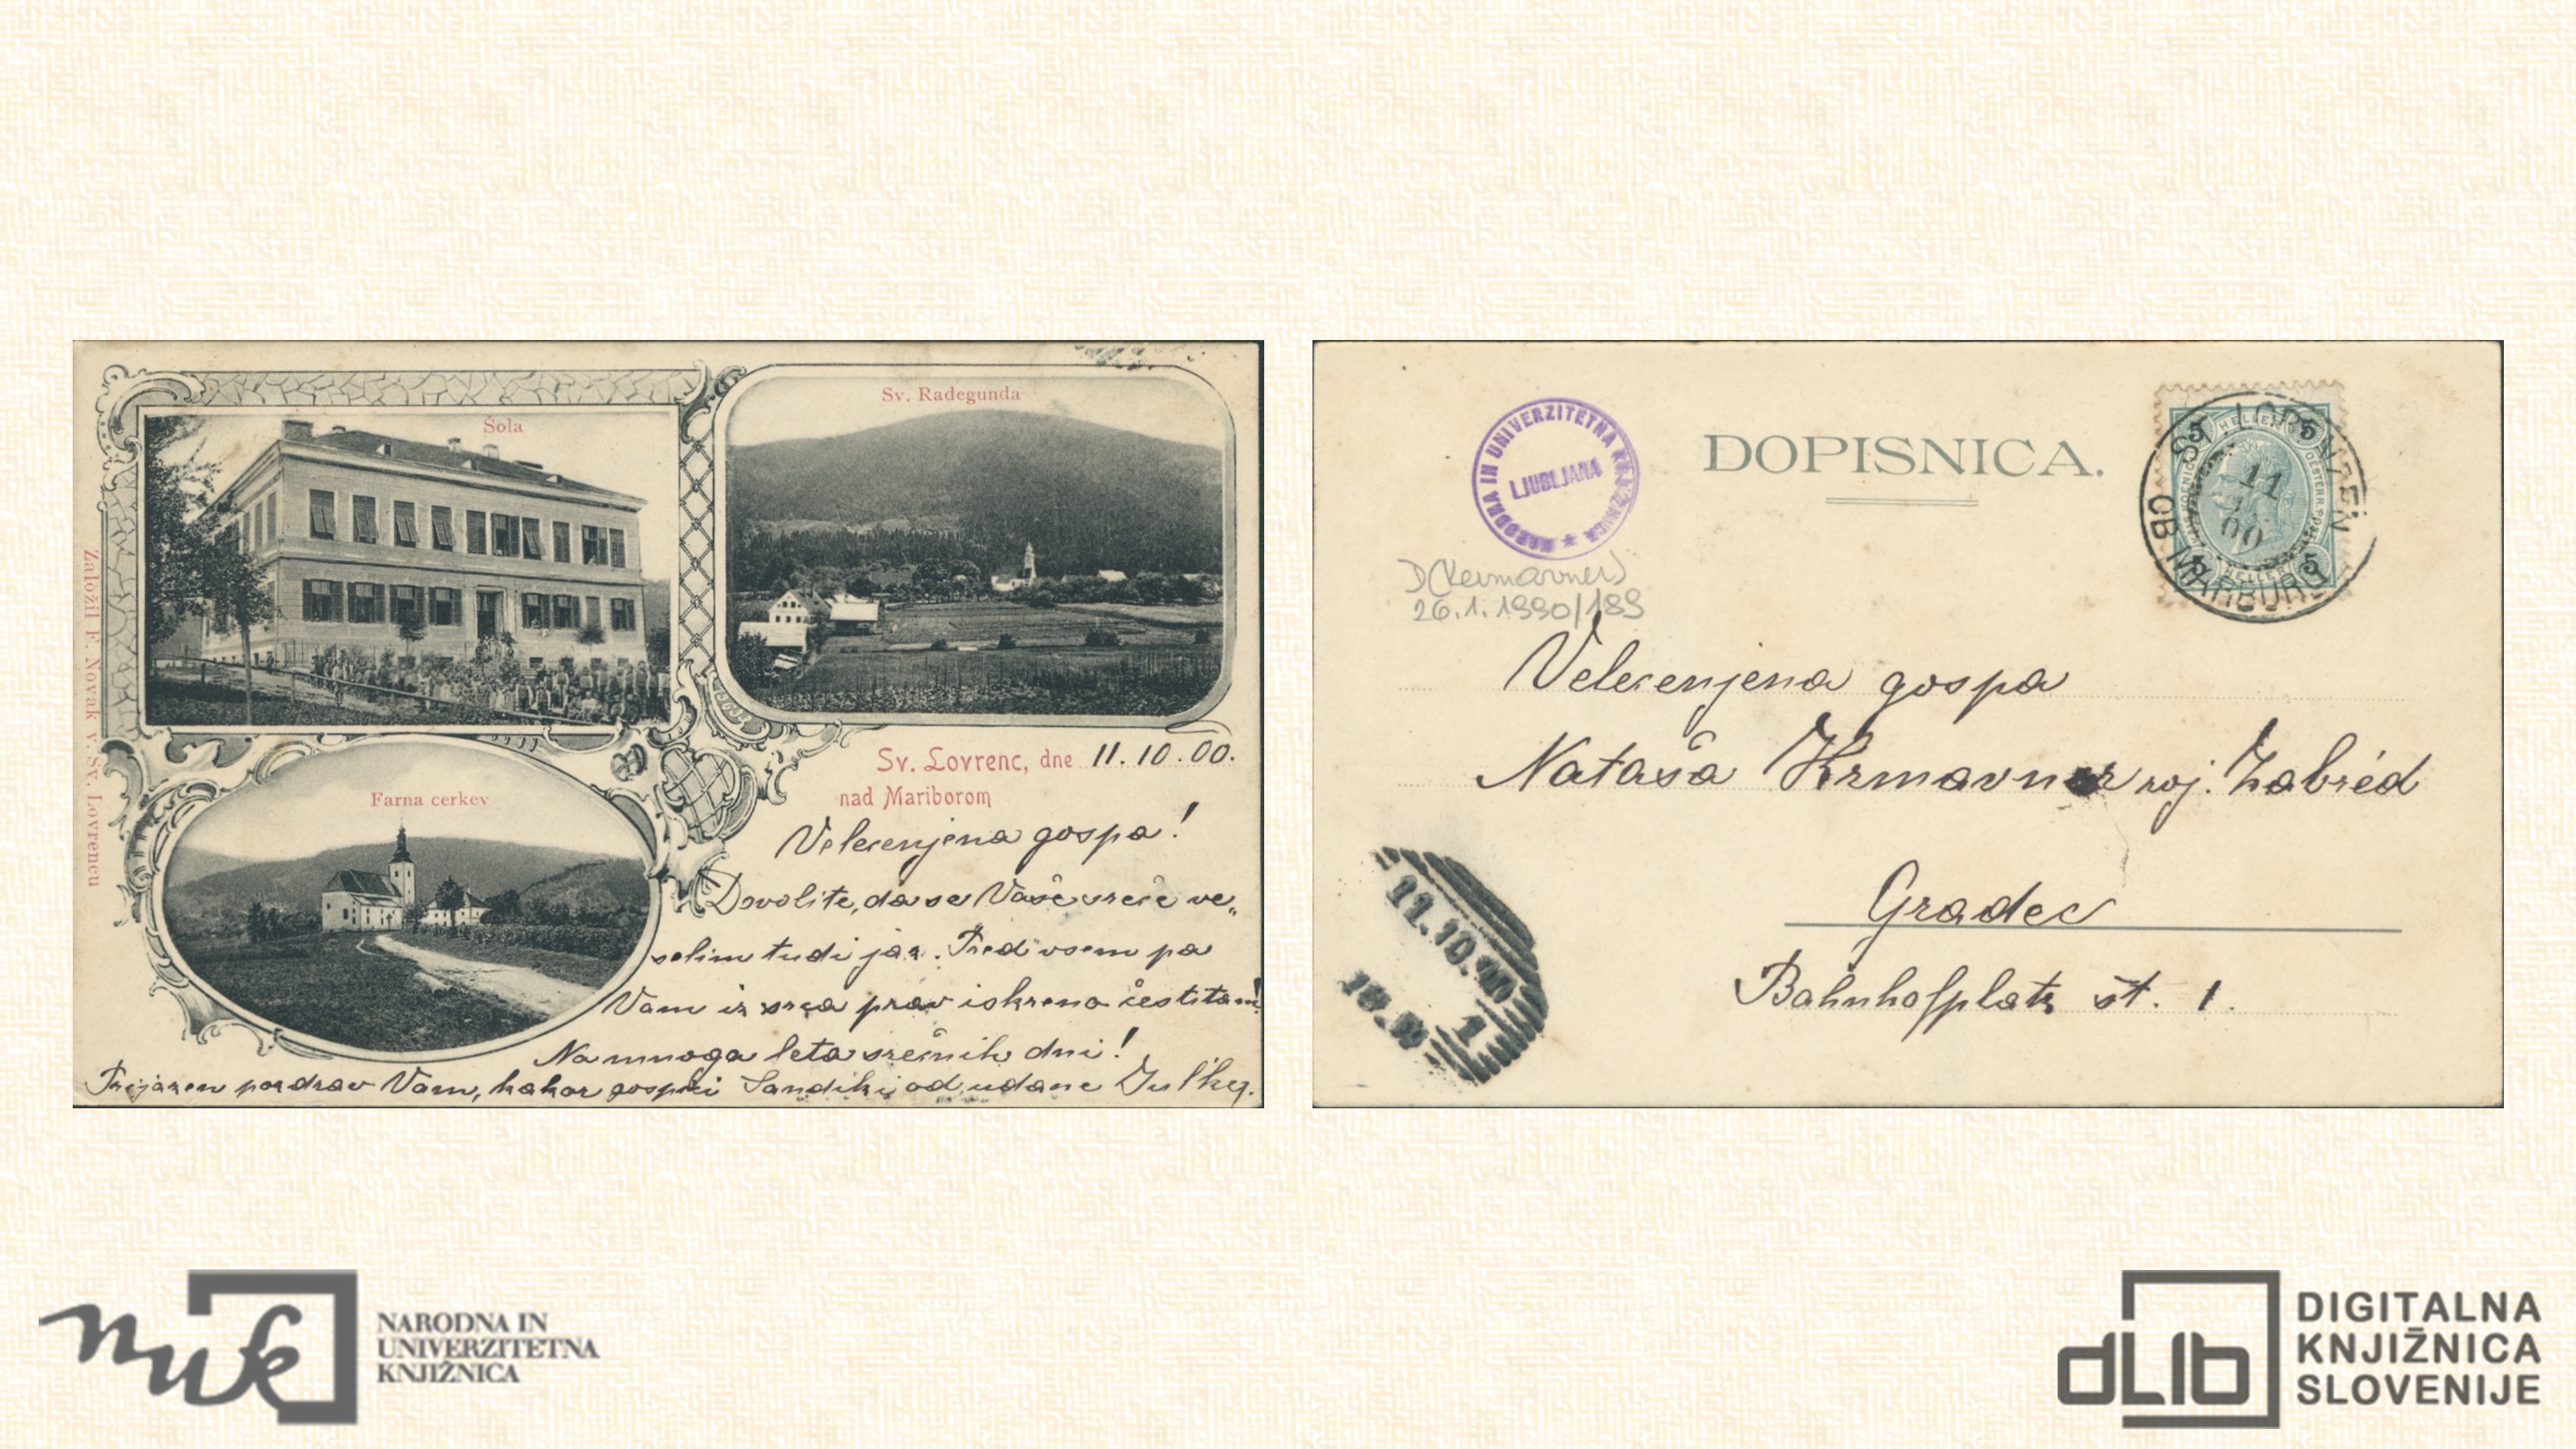 Šola
Sv. Radegunda
Založil F. Novak v Sv. Lovrencu
Farna cerkev
Sv. Lovrenc, dne 11.10.00.
nad Mariborom
Velecenjena gospa!
Dovolite, da se Vaše sreče ve„
selim tudi jaz. Pred vsem pa
Vam iz srca prav iskreno čestitam!
Na mnoga leta srečnih dni!
Prijazen pozdrav Vam, kakor gospej Sandiki, od udane Julke.
NARODNA IN UNIVERZITETNA KNJIŽNICA
LJUBLJANA
DOPISNICA.
ST. LORENZEN
OB MARBURG
11
00
D(Kermavner)
26.1.1990/189
Velecenjena gospa
Nataša Krmavner roj. Zabréd
Gradec
Bahnhofplatz št. 1.
11.10.
1
nuk
NARODNA IN
UNIVERZITETNA
KNJIŽNICA
dLib
DIGITALNA
KNJIŽNICA
SLOVENIJE